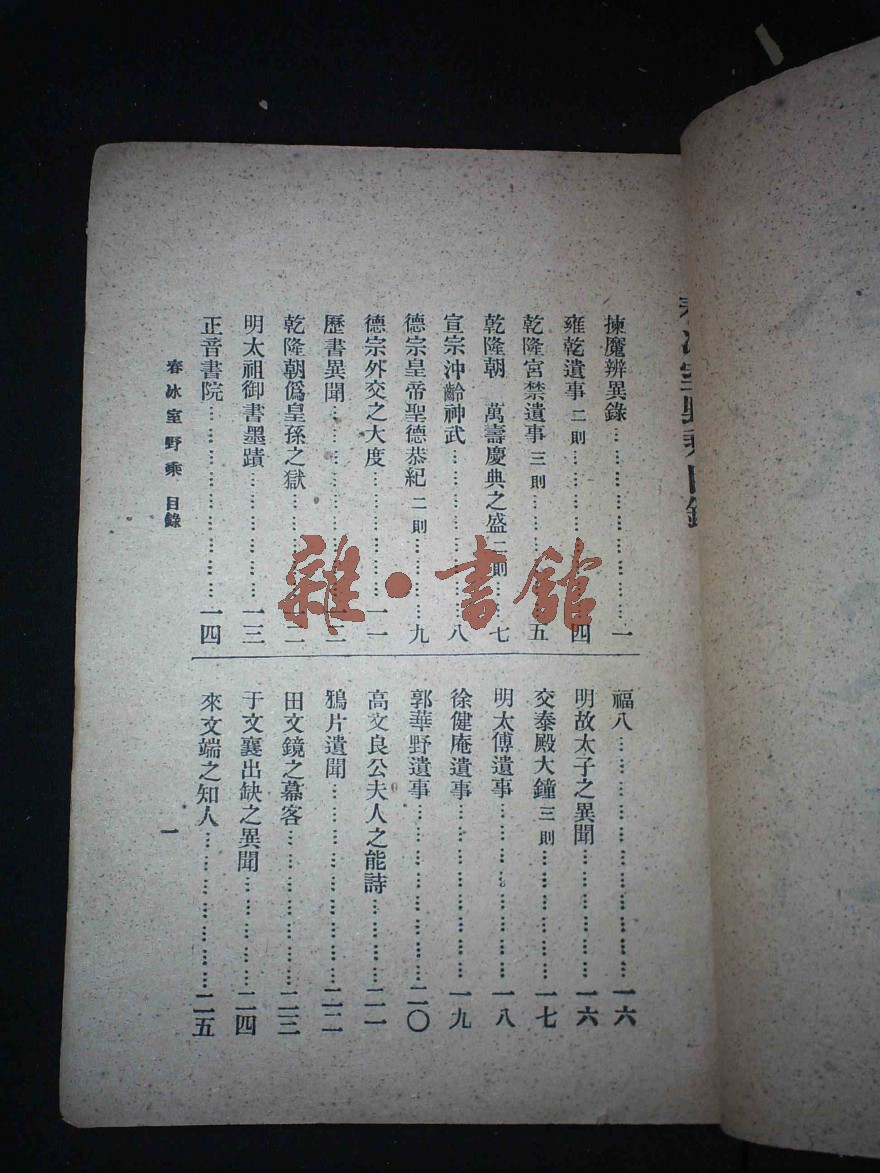 春冰室野乘目錄
揀魔辨異錄……………………一
雍乾遺事 二則……………………四
乾隆宮禁遺事 三則……………………五
乾隆朝 萬壽慶典之盛 二則……七
宣宗沖齡神武……………………八
德宗皇帝聖德恭紀 二則……………………九
德宗外交之大度……………………一一
歷書異聞……………………一二
乾隆朝僞皇孫之獄……………………一二
明太祖御書墨蹟……………………一三
正音書院……………………一四
福八……………………一六
明故太子之異聞……………………一六
交泰殿大鐘 三則……………………一七
明太傅遺事……………………一八
徐健庵遺事……………………一九
郭華野遺事……………………二〇
高文良公夫人之能詩……………………二一
鴉片遺聞……………………二二
田文鏡之幕客……………………二三
于文襄出缺之異聞……………………二四
來文端之知人……………………二五
春冰室野乘 目錄
一
雜·書館